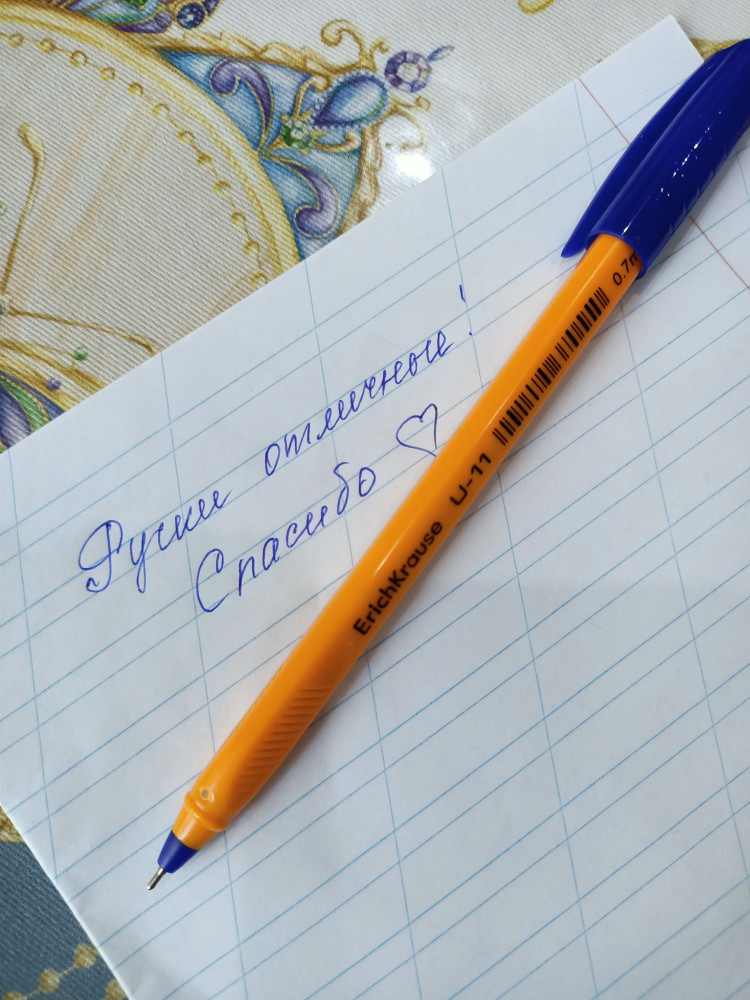 Ручки отличные!
Спасибо ♡
ErichKrause U-11 0.7